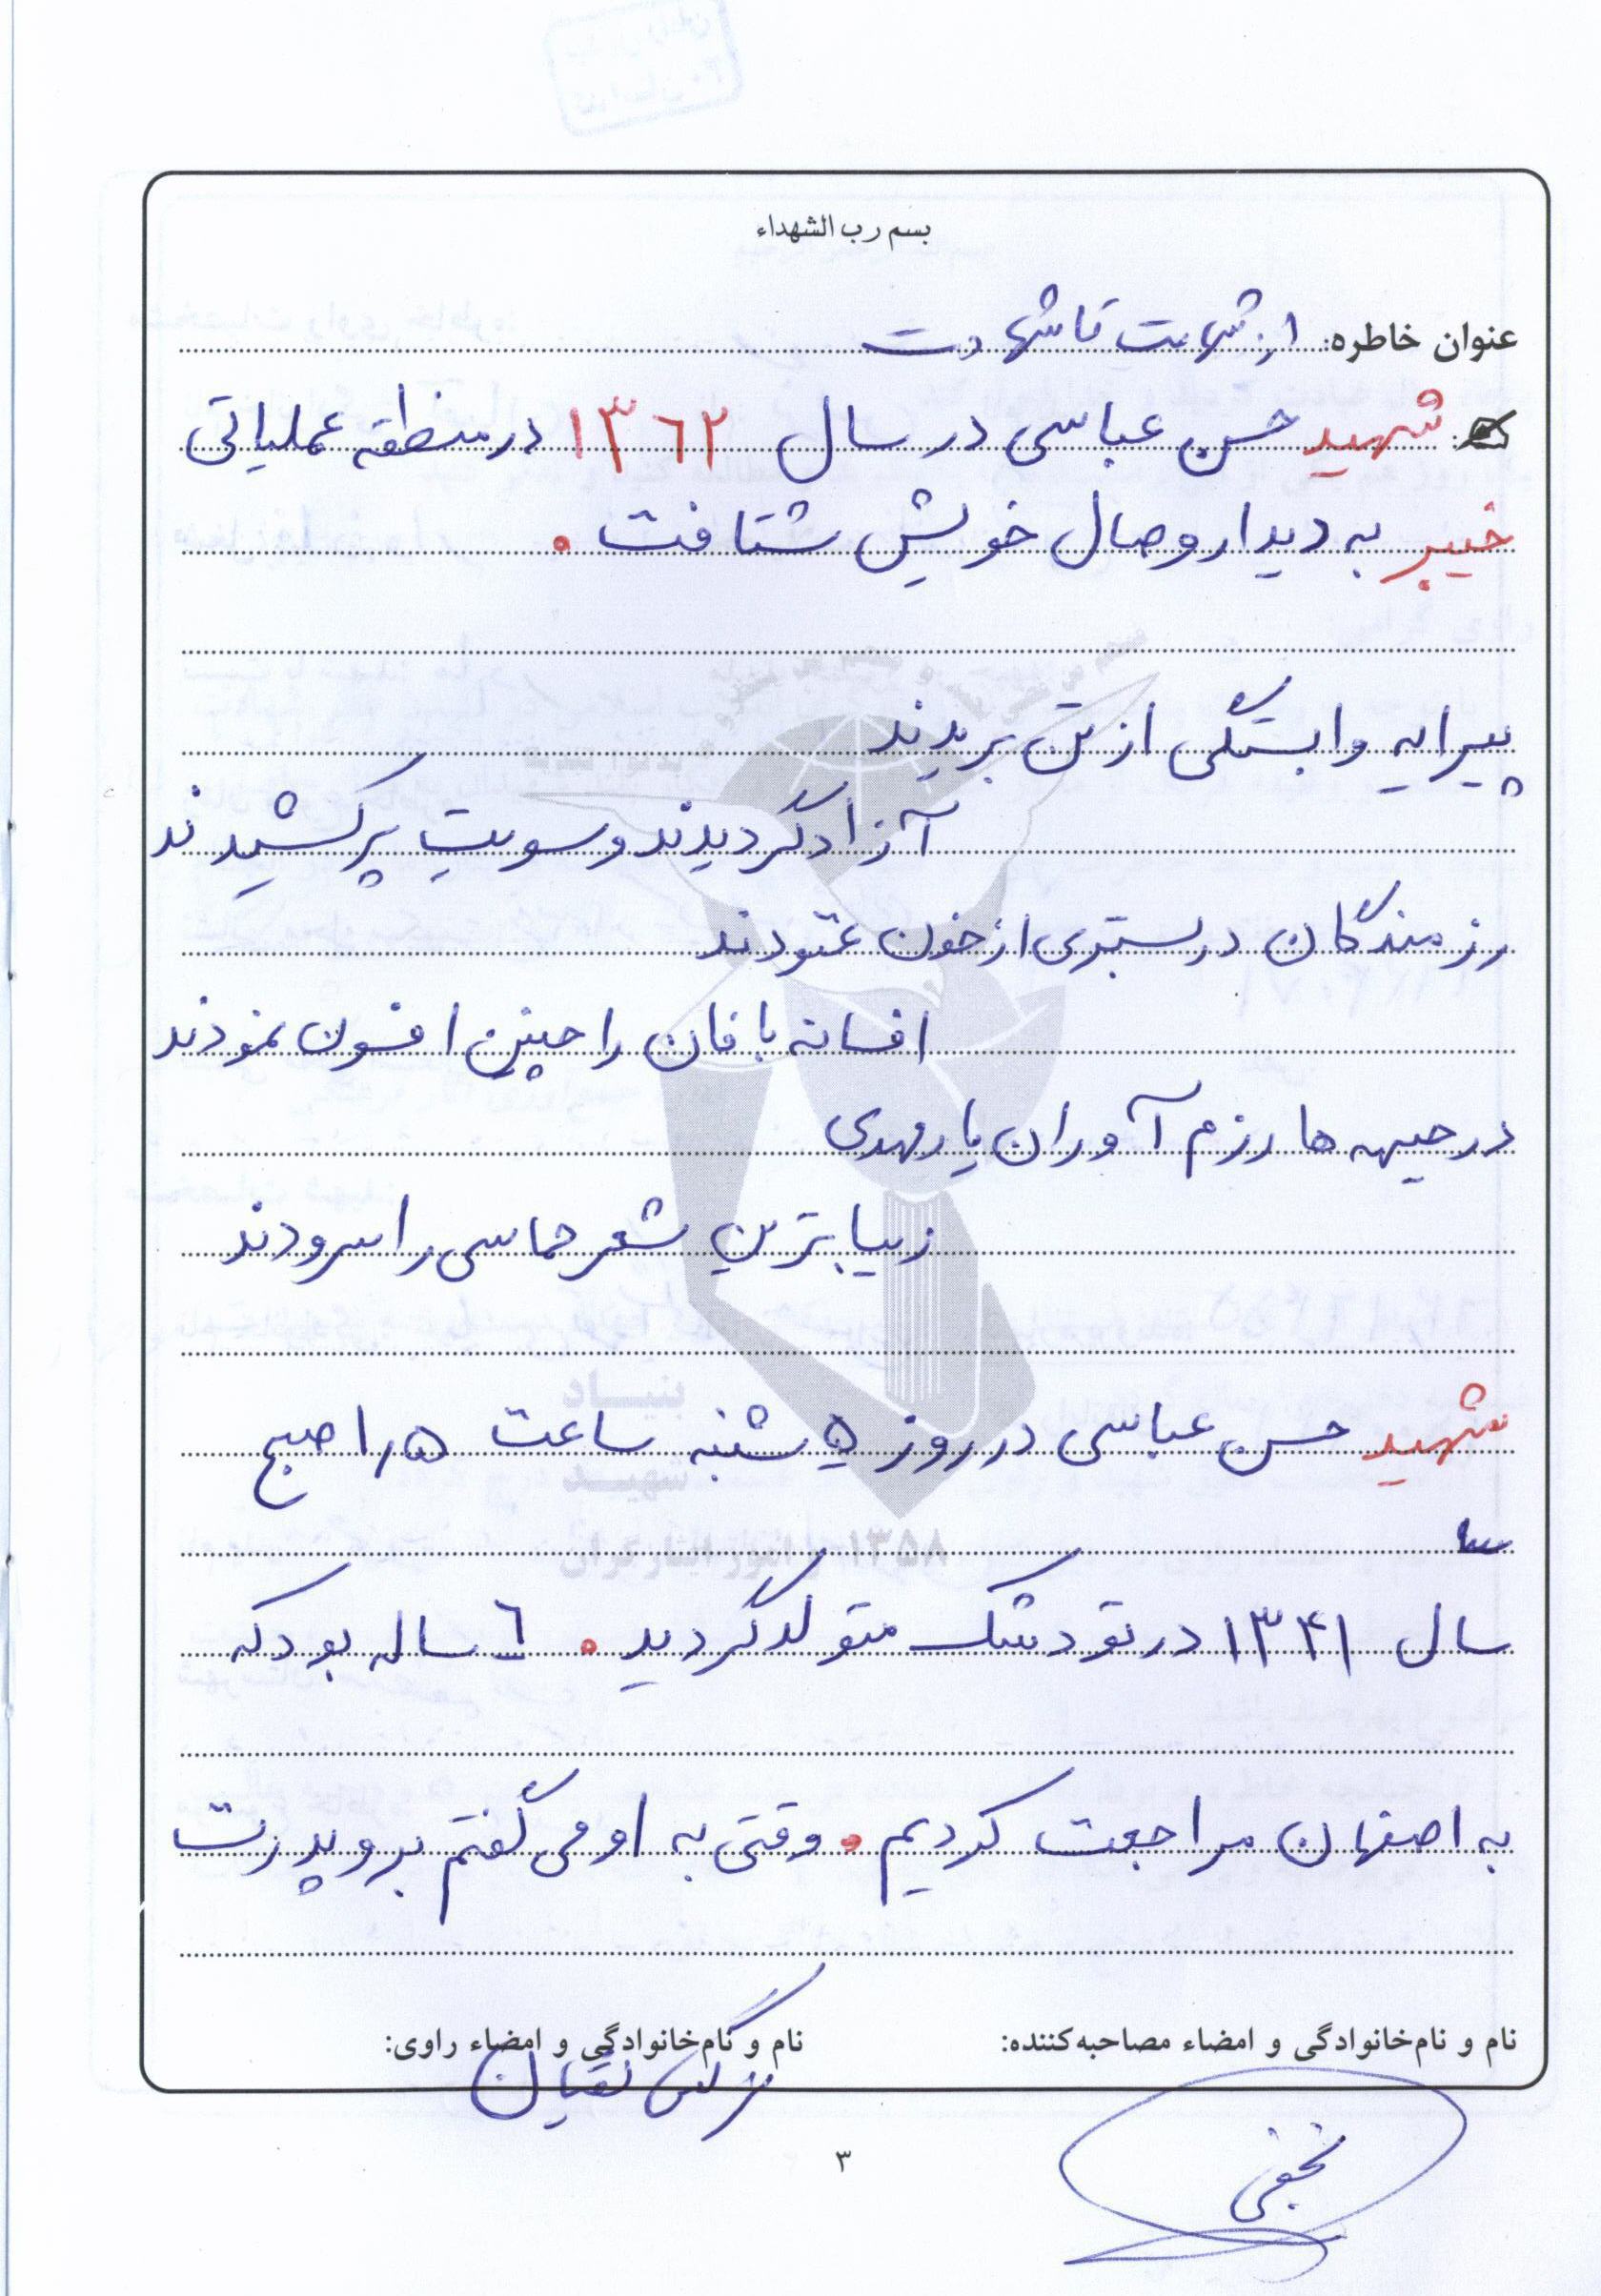 بسم رب الشهداء
عنوان خاطره: از شهامت تا شهادت
شهید حسن عباسی در سال ۱۳۶۲ در منطقه عملیاتی
خیبر به دیدار وصال خویش شتافت.
پیرایه وابستگی از تن بریدند
آزاد گردیدند و سویت پر کشیدند
رزمندگان در بستری از خون غنودند
افسانه بافان را چنین افسون نمودند
در جبهه ها رزم آوران یار مهدی
زیباترین شعر حماسی را سرودند
شهید حسن عباسی در روز ۵ شنبه ساعت ۱٫۵ صبح
سال ۱۳۴۱ در تودشک متولد گردید. ۶ ساله بود که
به اصفهان مراجعت کردیم. وقتی به او می گفتم برو پدرت
نام و نام‌خانوادگی و امضاء مصاحبه‌کننده:
نام و نام‌خانوادگی و امضاء راوی:
نرگس نقیان
نجفی
۳
بنیاد
شهید
و امور ایثارگران ۱۳۵۸